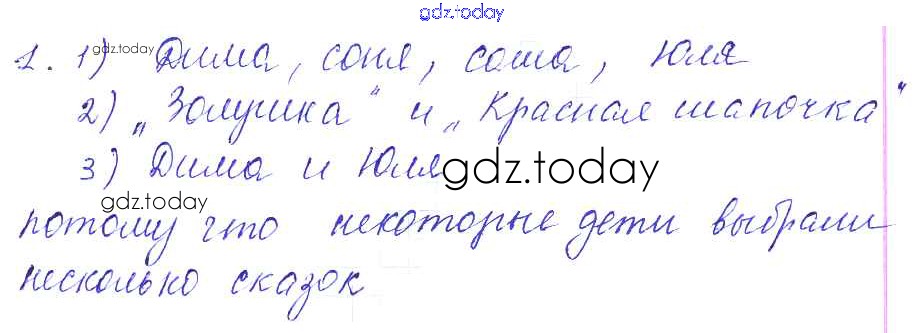 gdz.today
1. 1) Дима, соня, саша, Юля
gdz.today
2) „Золушка“ и „Красная шапочка“
3) Дима и Юля
gdz.today
gdz.today
потому что некоторые дети выбрали
несколько сказок